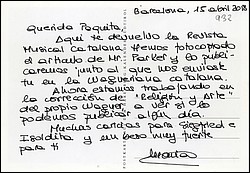 Barcelona, 15 abril 2018
932
Querida Paquita,
Aquí te devuelvo la Revista
Musical Catalana. Hemos fotocopiado
el artículo de Mr. Parker y lo publi-
caremos junto al que nos enviaste
tu en la Wagneriana catalana.
Ahora estamos trabajando en
la corrección de "Religión y Arte"
del propio Wagner, a ver si lo
podemos publicar algún día.
Muchas caricias para Siegfried e
Isoldita y un beso muy fuerte
para ti